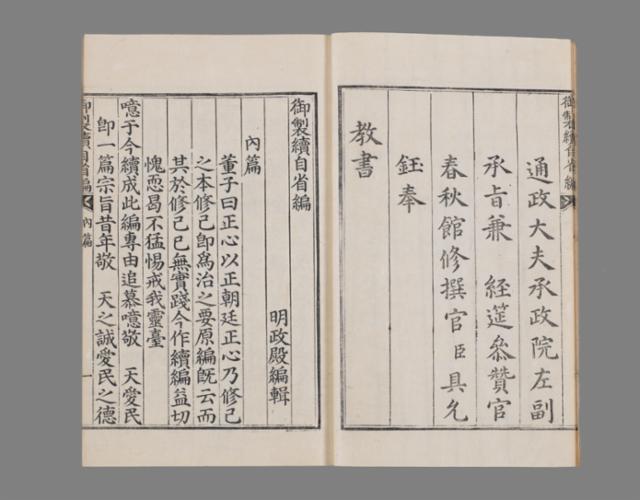 通政大夫承政院左副
承旨兼 經筵參贊官
春秋館修撰官臣具允
鈺奉
教書
御製續自省編
明政殿編輯
內篇
董子曰正心以正朝廷正心乃修己
之本修己卽爲治之要原編旣云而
其於修己已無實踐今作續編益切
愧恧曷不猛惕戒我靈臺
噫于今續成此編專由追慕噫敬 天愛民
卽一篇宗旨昔年敬 天之誠愛民之德
御製續自省編
內篇
一